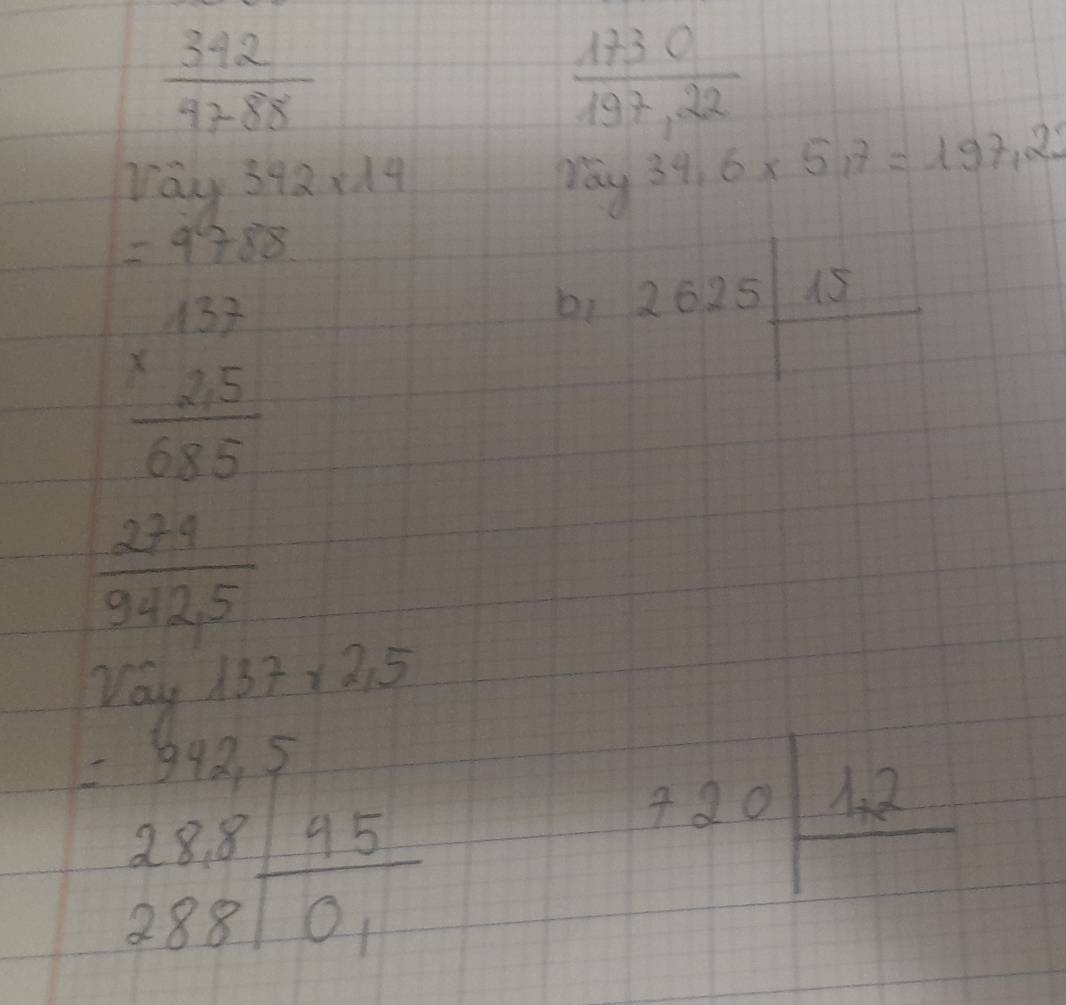 342
4788
Vậy 342 x 14
= 4788
137
x
2,5
685
274
942,5
Vậy 137 x 2,5
= 942,5
28,8 45
288 0,
1730
197,22
Vậy 34,6 x 5,7 = 197,22
b, 2625 15
720 1,2